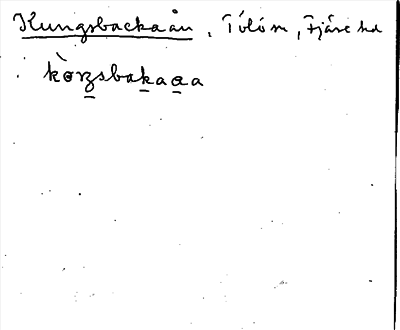 Kungsbackaån, Tölö sn, Fjäre hd
kòꞷzsbakaaa